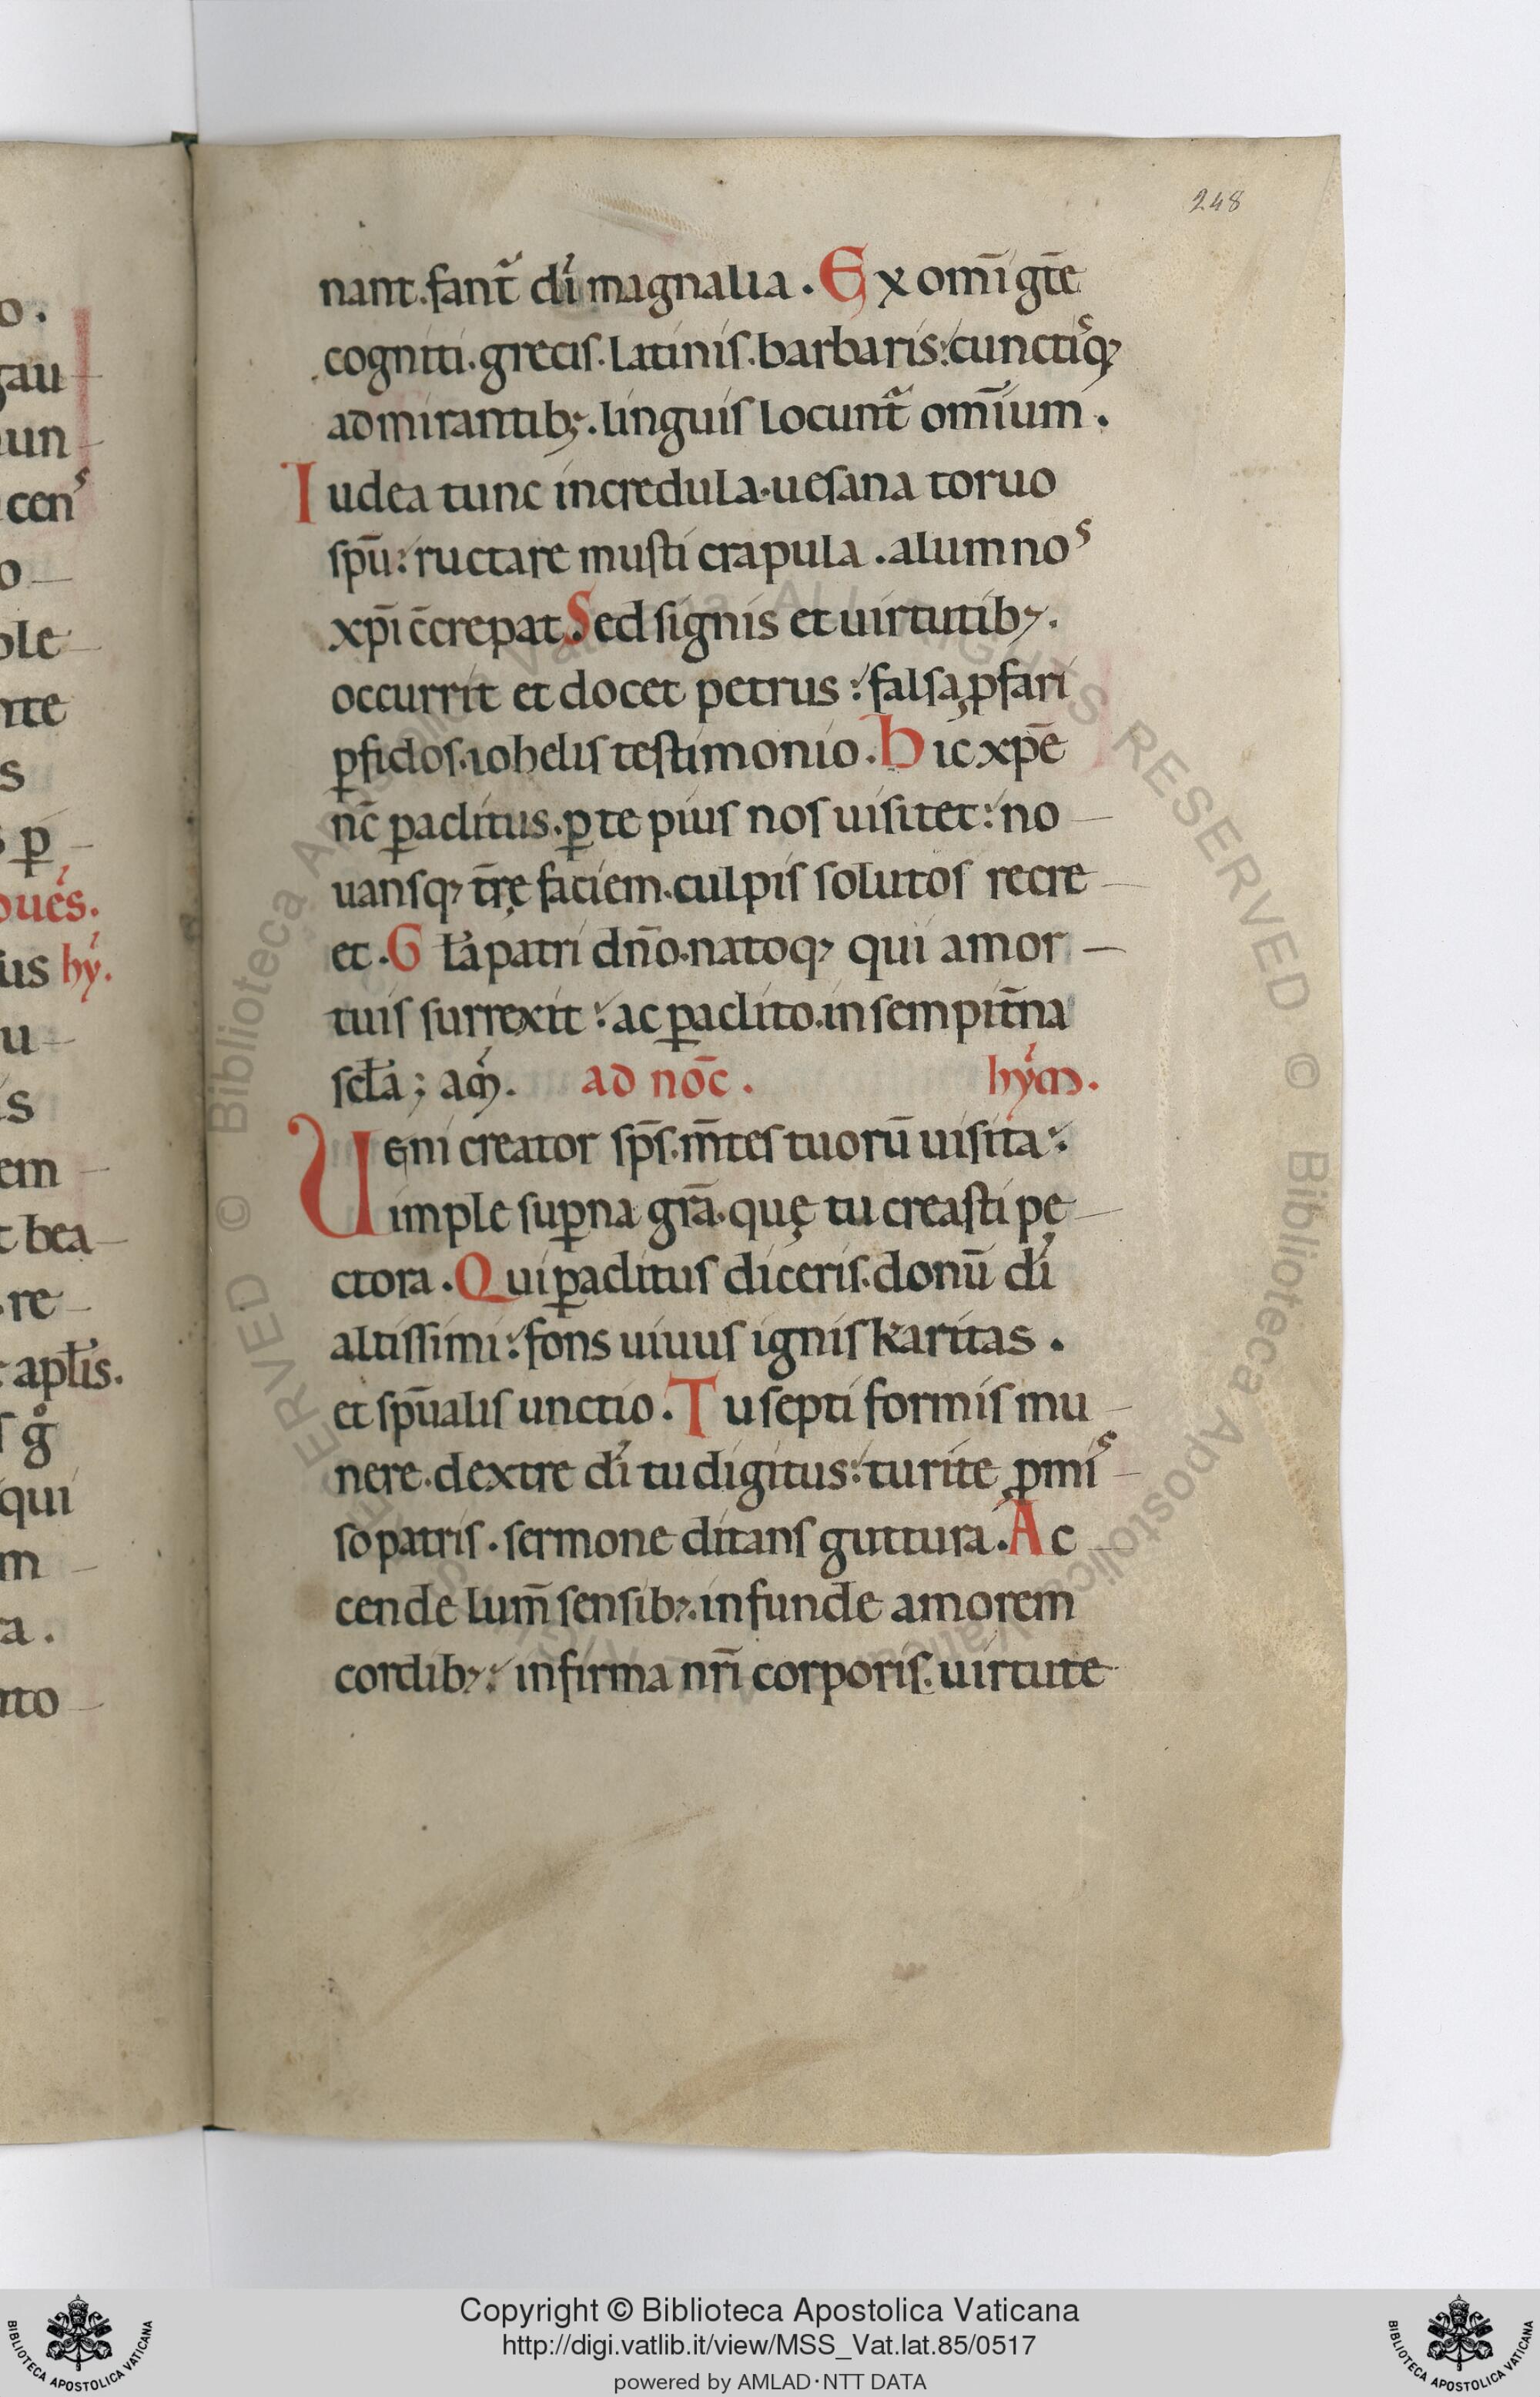 o.
gau
un
cens
o
ple
nte
s
s ꝑ
oues.
us hy.
u
s
em
t bea
re
aptis.
s g
qui
m
a.
nto
248
nant. fant̃ dı̄ magnalia. Ex om̄i gēte
cogniti. grecis. latinis. barbaris: cunctisqꝫ
admirantibꝫ. linguis locunt̃ om̄ium.
Iudea tunc incredula. uesana toruo
spū: ructare musti crapula. alumnos
xp̄i c̄crepat. Sed signis et uirtutibꝫ.
occurrit et docet petrus: falsa ꝓfari
ꝑfidos. iohelis testimonio. Hic xp̄e
nc̄ ꝑaclitus. ꝑ te pius nos uisitet: no
uansqꝫ tr̄ę faciem. culpis solutos recre
et. Gła patri dn̄o. natoqꝫ qui amor
tuis surrexit: ac ꝑaclito. in sempit̄na
scła; am̄. ad noc̄. hym.
Ueni creator sp̄s. m̄tes tuorū uisita:
imple suꝑna grā. quę tu creasti pe
ctora. Qui ꝑaclitus diceris. donū dı̄
altissimi: fons uiuus ignis karitas.
et spūalis unctio. Tu septiformis mu
nere. dextre dı̄ tu digitus: tu rite ꝓmis
so patris. sermone ditans guttura. Ac
cende lum̄ sensibꝫ. infunde amorem
cordibꝫ: infirma nr̄i corporis. uirtute
© Biblioteca Apostolica Vaticana ALL RIGHTS RESERVED
BIBLIOTECA APOSTOLICA VATICANA
Copyright © Biblioteca Apostolica Vaticana
http://digi.vatlib.it/view/MSS_Vat.lat.85/0517
powered by AMLAD·NTT DATA
BIBLIOTECA APOSTOLICA VATICANA